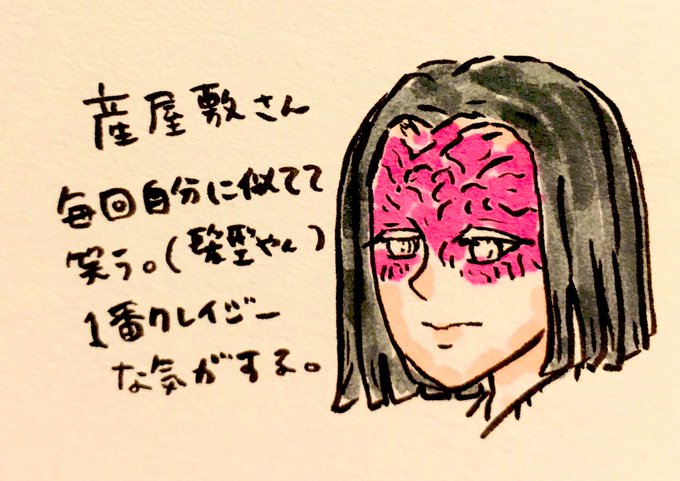 産屋敷さん
毎回自分に似てて
笑う。(髪型やん)
1番クレイジー
な気がする。